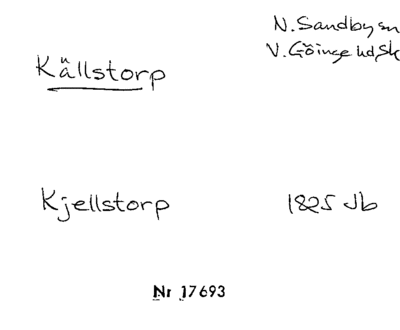 N. Sandby sn
Källstorp
V. Göinge hd Sk
Kjellstorp
1825 Jb
Nr 17693